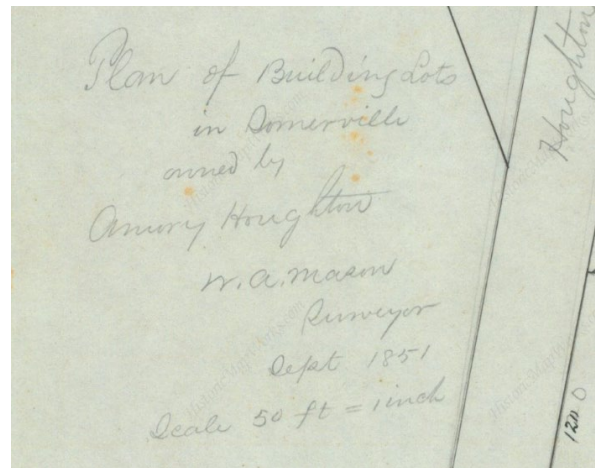 Plan of Building Lots
in Somerville
owned by
Amory Houghton
W. A. Mason
Surveyor
Sept 1851
Scale 50 ft = 1 inch
Houghton
120